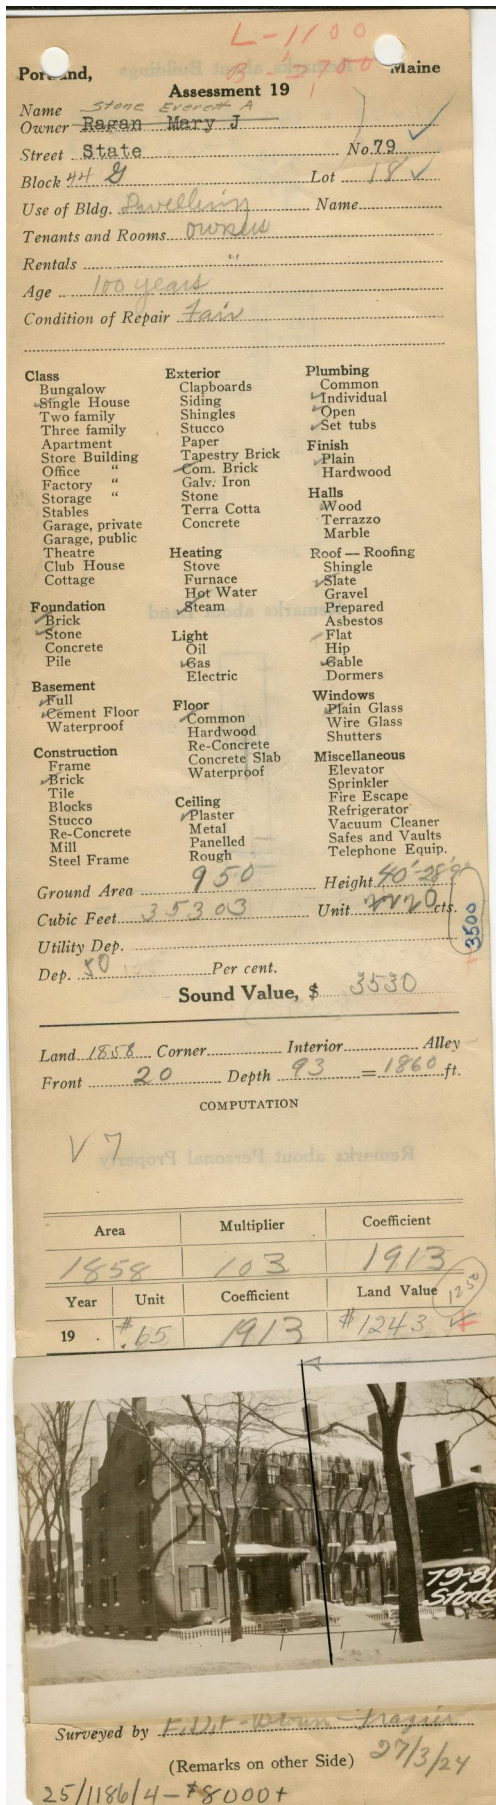 L-1100
Portland, Maine
Assessment 19
Name Stone Everett A
Owner Ragan Mary J
Street State No. 79
Block 44 G Lot 18
Use of Bldg. Dwelling Name
Tenants and Rooms owners
Rentals "
Age 100 years
Condition of Repair Fair
Class
Bungalow
Single House
Two family
Three family
Apartment
Store Building
Office "
Factory "
Storage "
Stables
Garage, private
Garage, public
Theatre
Club House
Cottage
Foundation
Brick
Stone
Concrete
Pile
Basement
Full
Cement Floor
Waterproof
Construction
Frame
Brick
Tile
Blocks
Stucco
Re-Concrete
Mill
Steel Frame
Exterior
Clapboards
Siding
Shingles
Stucco
Paper
Tapestry Brick
Com. Brick
Galv. Iron
Stone
Terra Cotta
Concrete
Heating
Stove
Furnace
Hot Water
Steam
Light
Oil
Gas
Electric
Floor
Common
Hardwood
Re-Concrete
Concrete Slab
Waterproof
Ceiling
Plaster
Metal
Panelled
Rough
Plumbing
Common
Individual
Open
Set tubs
Finish
Plain
Hardwood
Halls
Wood
Terrazzo
Marble
Roof — Roofing
Shingle
Slate
Gravel
Prepared
Asbestos
Flat
Hip
Gable
Dormers
Windows
Plain Glass
Wire Glass
Shutters
Miscellaneous
Elevator
Sprinkler
Fire Escape
Refrigerator
Vacuum Cleaner
Safes and Vaults
Telephone Equip.
Ground Area 950 Height 40'-28'
Cubic Feet 35303 Unit cts.
3500
Utility Dep.
Dep. 50 Per cent.
Sound Value, $ 3530
Land 1858 Corner Interior Alley
Front 20 Depth 93 = 1860 ft.
COMPUTATION
V 7
Area Multiplier Coefficient
1858 103 1913
Year Unit Coefficient Land Value 1250
19 . $.65 1913 $1243
79-81
State
Surveyed by Frazier
(Remarks on other Side) 27/3/24
25/1186/4-$8000+